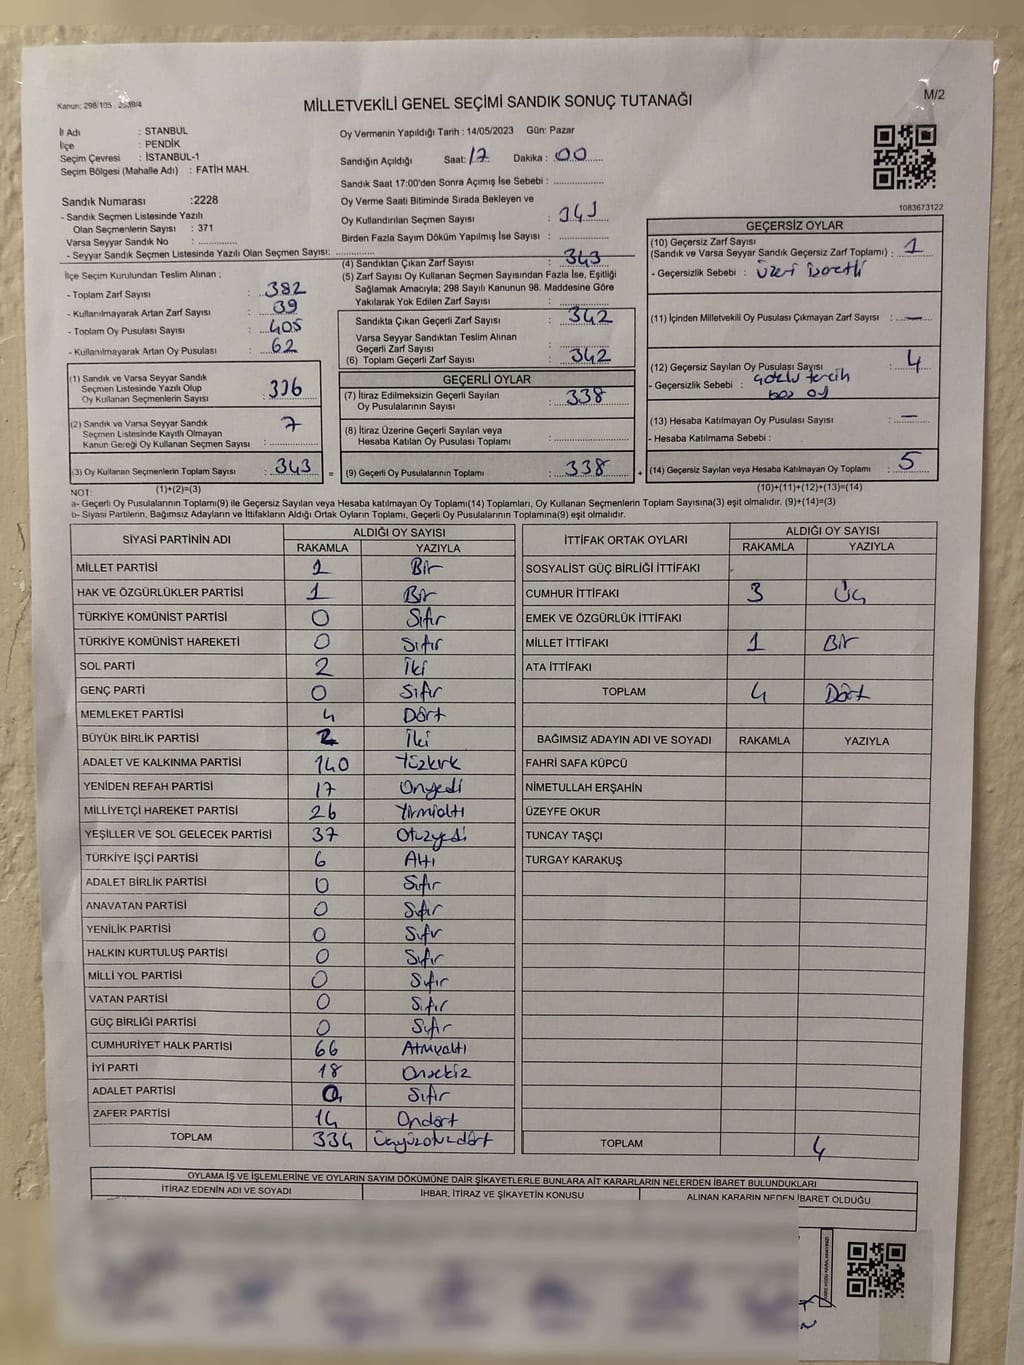 Kanun: 298/105 . 2839/4
MİLLETVEKİLİ GENEL SEÇİMİ SANDIK SONUÇ TUTANAĞI
M/2
İl Adı : STANBUL
İlçe : PENDİK
Seçim Çevresi : İSTANBUL-1
Seçim Bölgesi (Mahalle Adı) : FATİH MAH.
Sandık Numarası :2228
- Sandık Seçmen Listesinde Yazılı
Olan Seçmenlerin Sayısı : 371
Varsa Seyyar Sandık No :
- Seyyar Sandık Seçmen Listesinde Yazılı Olan Seçmen Sayısı:
İlçe Seçim Kurulundan Teslim Alınan ;
- Toplam Zarf Sayısı : 382
- Kullanılmayarak Artan Zarf Sayısı : 39
- Toplam Oy Pusulası Sayısı : 405
- Kullanılmayarak Artan Oy Pusulası : 62
(1) Sandık ve Varsa Seyyar Sandık
Seçmen Listesinde Yazılı Olup
Oy Kullanan Seçmenlerin Sayısı : 336
(2) Sandık ve Varsa Seyyar Sandık
Seçmen Listesinde Kayıtlı Olmayan
Kanun Gereği Oy Kullanan Seçmen Sayısı : 7
(3) Oy Kullanan Seçmenlerin Toplam Sayısı : 343
(1)+(2)=(3)
Oy Vermenin Yapıldığı Tarih : 14/05/2023 Gün: Pazar
Sandığın Açıldığı Saat: 17 Dakika : 00
Sandık Saat 17:00'den Sonra Açılmış İse Sebebi :
Oy Verme Saati Bitiminde Sırada Bekleyen ve
Oy Kullandırılan Seçmen Sayısı : 343
Birden Fazla Sayım Döküm Yapılmış İse Sayısı :
(4) Sandıktan Çıkan Zarf Sayısı : 343
(5) Zarf Sayısı Oy Kullanan Seçmen Sayısından Fazla İse, Eşitliği
Sağlamak Amacıyla; 298 Sayılı Kanunun 98. Maddesine Göre
Yakılarak Yok Edilen Zarf Sayısı :
Sandıkta Çıkan Geçerli Zarf Sayısı : 342
Varsa Seyyar Sandıktan Teslim Alınan
Geçerli Zarf Sayısı :
(6) Toplam Geçerli Zarf Sayısı : 342
GEÇERLİ OYLAR
(7) İtiraz Edilmeksizin Geçerli Sayılan
Oy Pusulalarının Sayısı : 338
(8) İtiraz Üzerine Geçerli Sayılan veya
Hesaba Katılan Oy Pusulası Toplamı :
= (9) Geçerli Oy Pusulalarının Toplamı : 338 +
1083673122
GEÇERSİZ OYLAR
(10) Geçersiz Zarf Sayısı
(Sandık ve Varsa Seyyar Sandık Geçersiz Zarf Toplamı) : 1
- Geçersizlik Sebebi : üzeri işaretli
(11) İçinden Milletvekili Oy Pusulası Çıkmayan Zarf Sayısı : —
(12) Geçersiz Sayılan Oy Pusulası Sayısı : 4
- Geçersizlik Sebebi : çoklu tercih
boş oy
(13) Hesaba Katılmayan Oy Pusulası Sayısı : —
- Hesaba Katılmama Sebebi :
(14) Geçersiz Sayılan veya Hesaba Katılmayan Oy Toplamı : 5
(10)+(11)+(12)+(13)=(14)
NOT:
a- Geçerli Oy Pusulalarının Toplamı(9) ile Geçersiz Sayılan veya Hesaba katılmayan Oy Toplamı(14) Toplamları, Oy Kullanan Seçmenlerin Toplam Sayısına(3) eşit olmalıdır. (9)+(14)=(3)
b- Siyasi Partilerin, Bağımsız Adayların ve İttifakların Aldığı Ortak Oyların Toplamı, Geçerli Oy Pusulalarının Toplamına(9) eşit olmalıdır.
SİYASİ PARTİNİN ADI ALDIĞI OY SAYISI
RAKAMLA YAZIYLA
MİLLET PARTİSİ 1 Bir
HAK VE ÖZGÜRLÜKLER PARTİSİ 1 Bir
TÜRKİYE KOMÜNİST PARTİSİ 0 Sıfır
TÜRKİYE KOMÜNİST HAREKETİ 0 Sıfır
SOL PARTİ 2 İki
GENÇ PARTİ 0 Sıfır
MEMLEKET PARTİSİ 4 Dört
BÜYÜK BİRLİK PARTİSİ 2 İki
ADALET VE KALKINMA PARTİSİ 140 Yüzkırk
YENİDEN REFAH PARTİSİ 17 Onyedi
MİLLİYETÇİ HAREKET PARTİSİ 26 Yirmialtı
YEŞİLLER VE SOL GELECEK PARTİSİ 37 Otuzyedi
TÜRKİYE İŞÇİ PARTİSİ 6 Altı
ADALET BİRLİK PARTİSİ 0 Sıfır
ANAVATAN PARTİSİ 0 Sıfır
YENİLİK PARTİSİ 0 Sıfır
HALKIN KURTULUŞ PARTİSİ 0 Sıfır
MİLLİ YOL PARTİSİ 0 Sıfır
VATAN PARTİSİ 0 Sıfır
GÜÇ BİRLİĞİ PARTİSİ 0 Sıfır
CUMHURİYET HALK PARTİSİ 66 Atmışaltı
İYİ PARTİ 18 Onsekiz
ADALET PARTİSİ 0 Sıfır
ZAFER PARTİSİ 14 Ondört
TOPLAM 334 Üçyüzotuzdört
İTTİFAK ORTAK OYLARI ALDIĞI OY SAYISI
RAKAMLA YAZIYLA
SOSYALİST GÜÇ BİRLİĞİ İTTİFAKI
CUMHUR İTTİFAKI 3 Üç
EMEK VE ÖZGÜRLÜK İTTİFAKI
MİLLET İTTİFAKI 1 Bir
ATA İTTİFAKI
TOPLAM 4 Dört
BAĞIMSIZ ADAYIN ADI VE SOYADI RAKAMLA YAZIYLA
FAHRİ SAFA KÜPCÜ
NİMETULLAH ERŞAHİN
ÜZEYFE OKUR
TUNCAY TAŞÇI
TURGAY KARAKUŞ
TOPLAM 4
OYLAMA İŞ VE İŞLEMLERİNE VE OYLARIN SAYIM DÖKÜMÜNE DAİR ŞİKAYETLERLE BUNLARA AİT KARARLARIN NELERDEN İBARET BULUNDUKLARI
İTİRAZ EDENİN ADI VE SOYADI İHBAR, İTİRAZ VE ŞİKAYETİN KONUSU ALINAN KARARIN NEDEN İBARET OLDUĞU